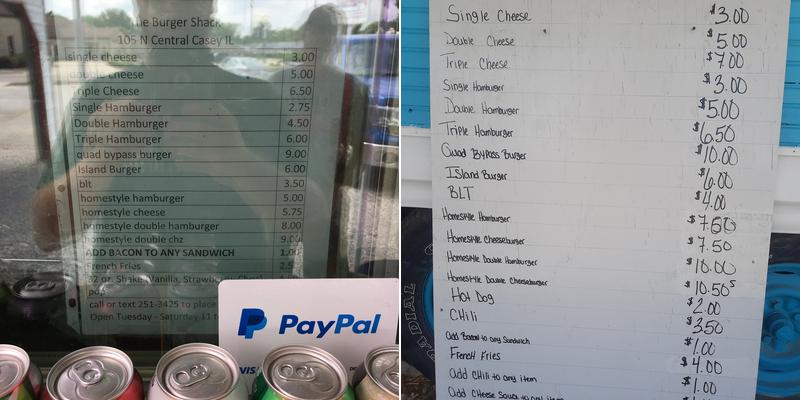 The Burger Shack
105 N Central Casey IL
single cheese 3.00
double cheese 5.00
Triple Cheese 6.50
Single Hamburger 2.75
Double Hamburger 4.50
Triple Hamburger 6.00
quad bypass burger 9.00
Island Burger 6.00
blt 3.50
homestyle hamburger 5.00
homestyle cheese 5.75
homestyle double hamburger 8.00
homestyle double chz 9.00
ADD BACON TO ANY SANDWICH 1.00
French Fries
32 oz. Shake (Vanilla, Strawberry,
pop
call or text 251-3425 to place
Open Tuesday - Saturday 11 t
PayPal
VIS
Single Cheese $3.00
Double Cheese $5.00
Triple Cheese $7.00
Single Hamburger $3.00
Double Hamburger $5.00
Triple Hamburger $6.50
Quad Bypass Burger $10.00
Island Burger $6.00
BLT $4.00
Homestyle Hamburger
Homestyle Cheeseburger $7.50
Homestyle Double Hamburger $10.00
Homestyle Double Cheeseburger $10.50
Hot Dog $2.00
Chili $3.50
Add Bacon to any Sandwich $1.00
French Fries $4.00
add Chili to any item $1.00
Add Cheese Sauce to any item
DIAL